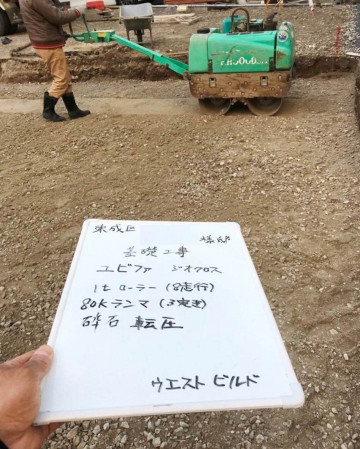 東成区 様邸
基礎工事
ユビファ ジオクロス
1t ローラー (8走行)
80Kランマ (3突き)
砕石 転圧
ウエスト ビルド